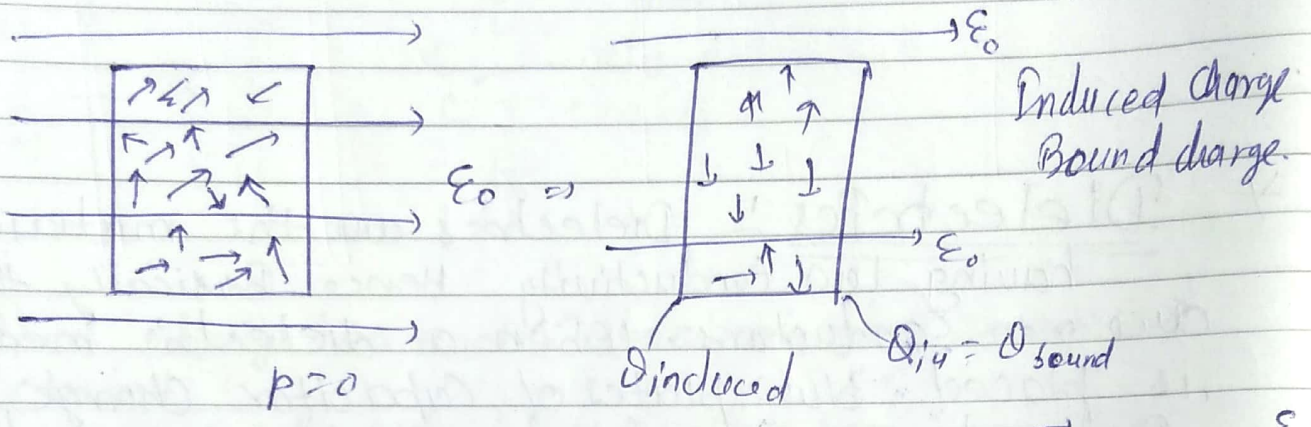 ε₀
Induced Charge
Bound charge.
ε₀ ⇒
ε₀
p=0
Qinduced
Qin = Qbound